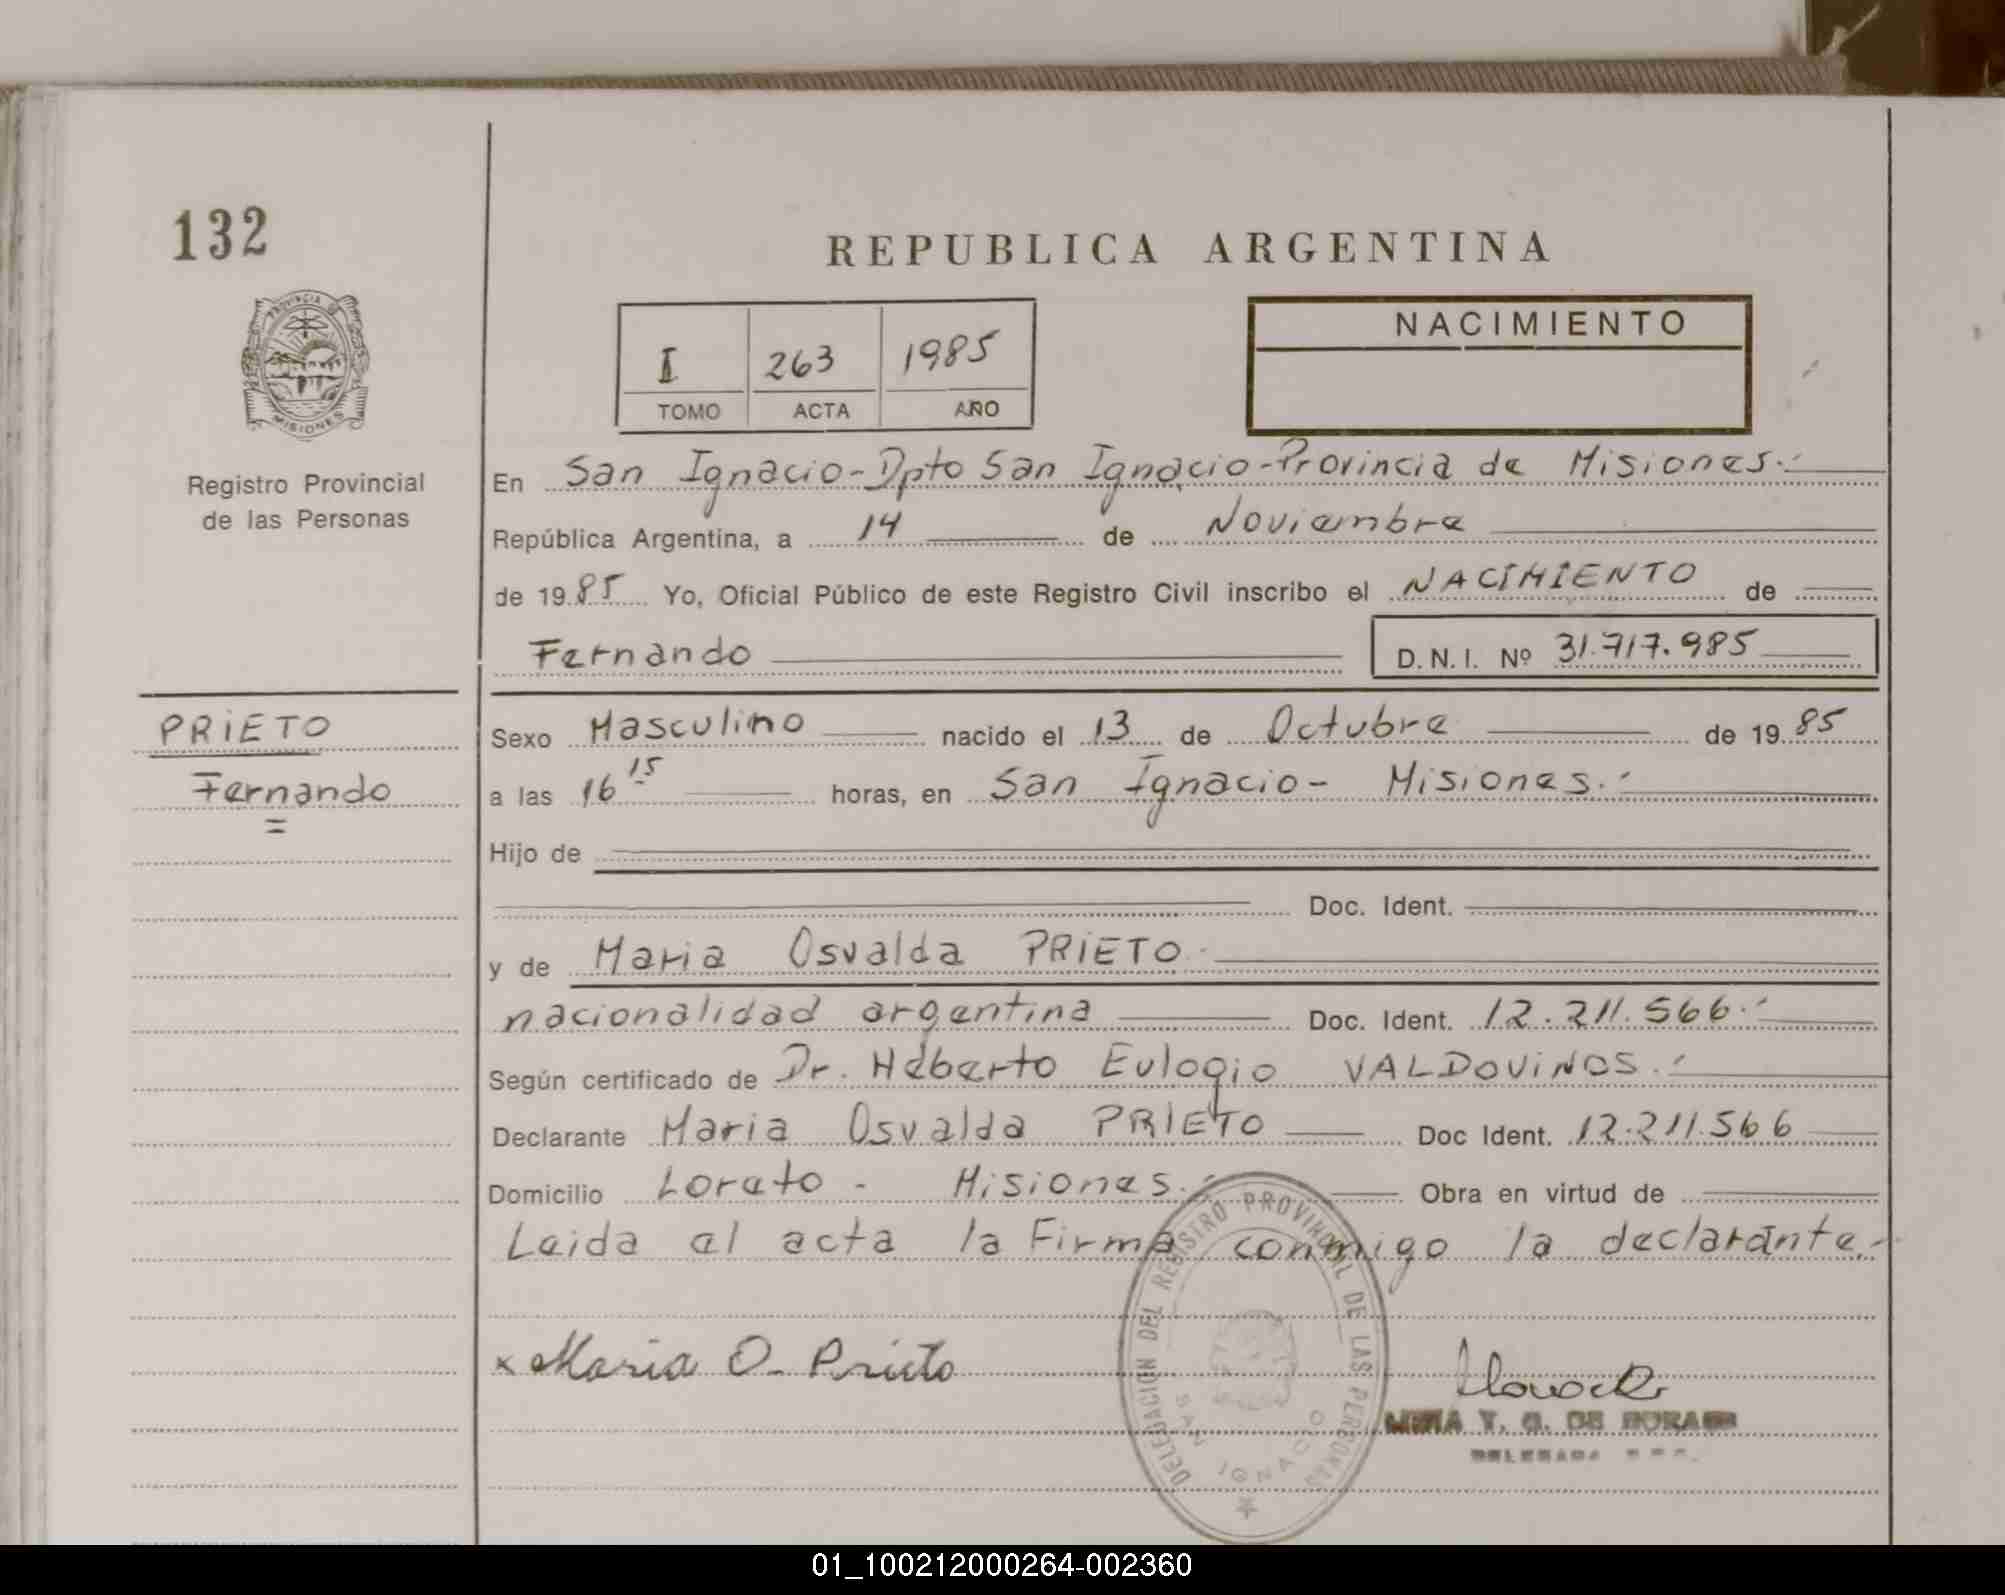 132
REPUBLICA ARGENTINA
PROVINCIA DE
MISIONES
Registro Provincial
de las Personas
I 263 1985
TOMO ACTA AÑO
NACIMIENTO
En San Ignacio - Dpto San Ignacio - Provincia de Misiones.-
República Argentina, a 14 de Noviembre
de 1985 Yo, Oficial Público de este Registro Civil inscribo el NACIMIENTO de
Fernando D.N.I. Nº 31.717.985
PRIETO
Fernando
Sexo Masculino nacido el 13 de Octubre de 1985
a las 16 15 horas, en San Ignacio - Misiones.-
Hijo de
Doc. Ident.
y de Maria Osvalda PRIETO
nacionalidad argentina Doc. Ident. 12.211.566.-
Según certificado de Dr. Heberto Eulogio VALDOVINOS.-
Declarante Maria Osvalda PRIETO Doc Ident. 12.211.566
Domicilio Loreto - Misiones.- Obra en virtud de
Leida el acta la Firma conmigo la declarante.-
x Maria O. Prieto
DELEGACION DEL REGISTRO PROVINCIAL DE LAS PERSONAS
SAN IGNACIO
Y. G. DE
DELEGADA
01_100212000264-002360